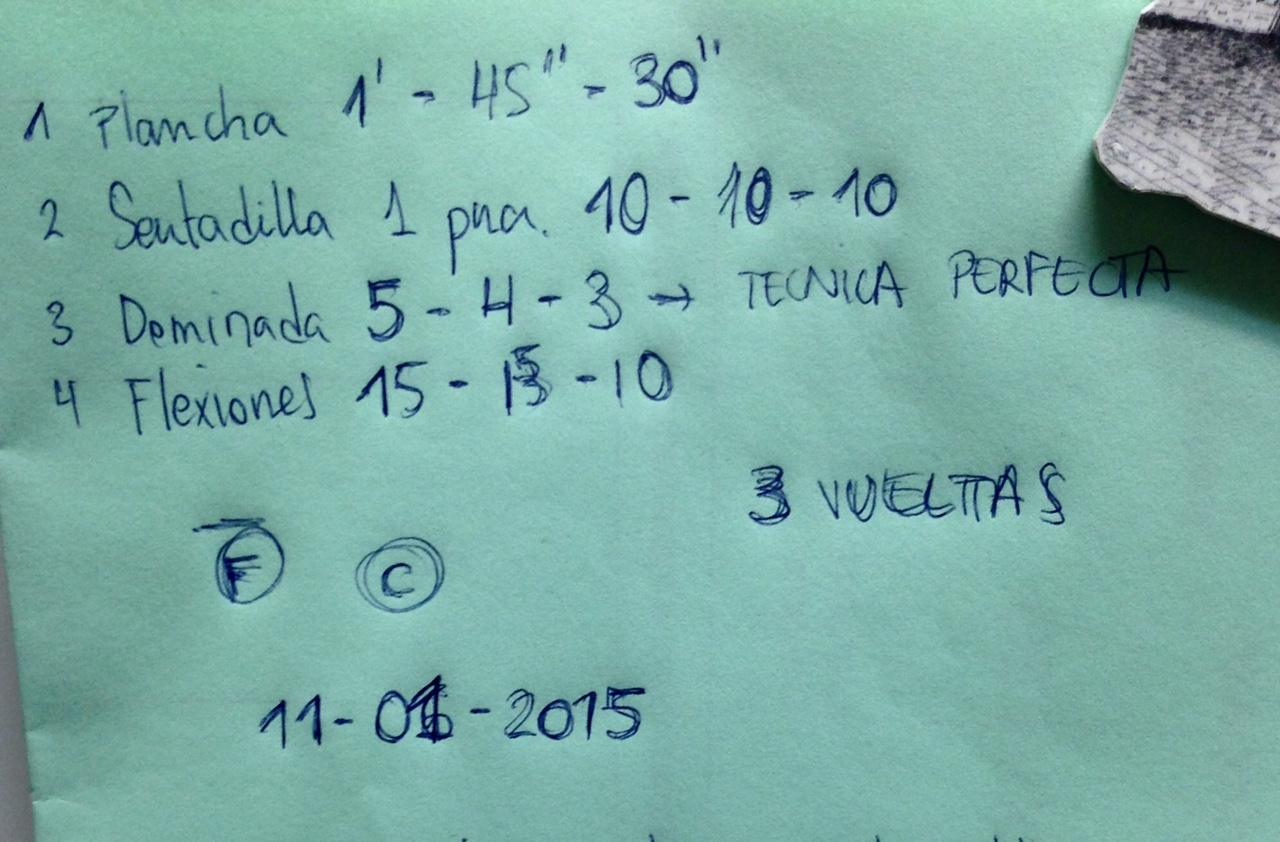 1 Plancha 1' - 45'' - 30''
2 Sentadilla 1 pna. 10 - 10 - 10
3 Dominada 5 - 4 - 3 → TECNICA PERFECTA
4 Flexiones 15 - 15 - 10
3 VUELTAS
F C
11-01-2015